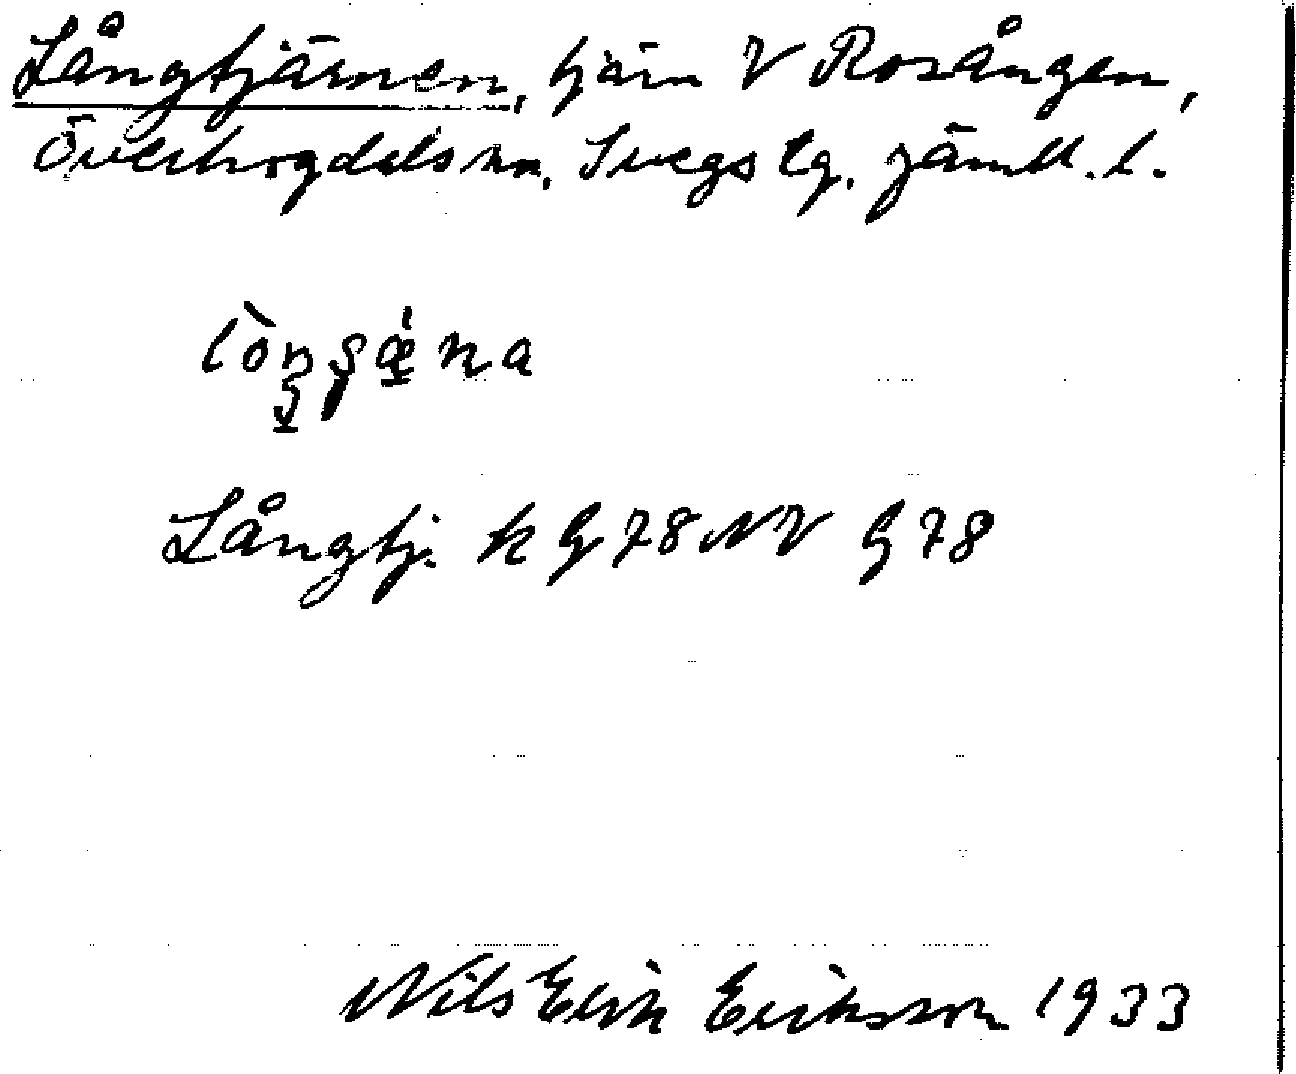 Långtjärnen, tjärn V Rosången,
Överhogdals sn. Svegs tg. Jämtl. l.
Långtj. k G 78 NV G 78
Nils Erik Eriksson 1933